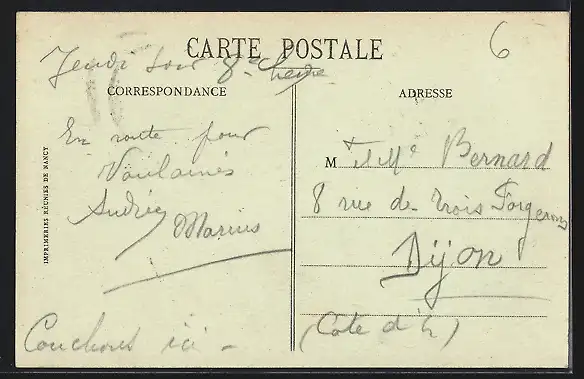 CARTE POSTALE
6
Jeudi soir 8e heure
CORRESPONDANCE
ADRESSE
En route pour
Voulaines
Andrée
Marius
Couchons ici -
IMPRIMERIES RÉUNIES DE NANCY
M et Me Bernard
8 rue des trois Forgerons
Dijon
(Côte d'Or)